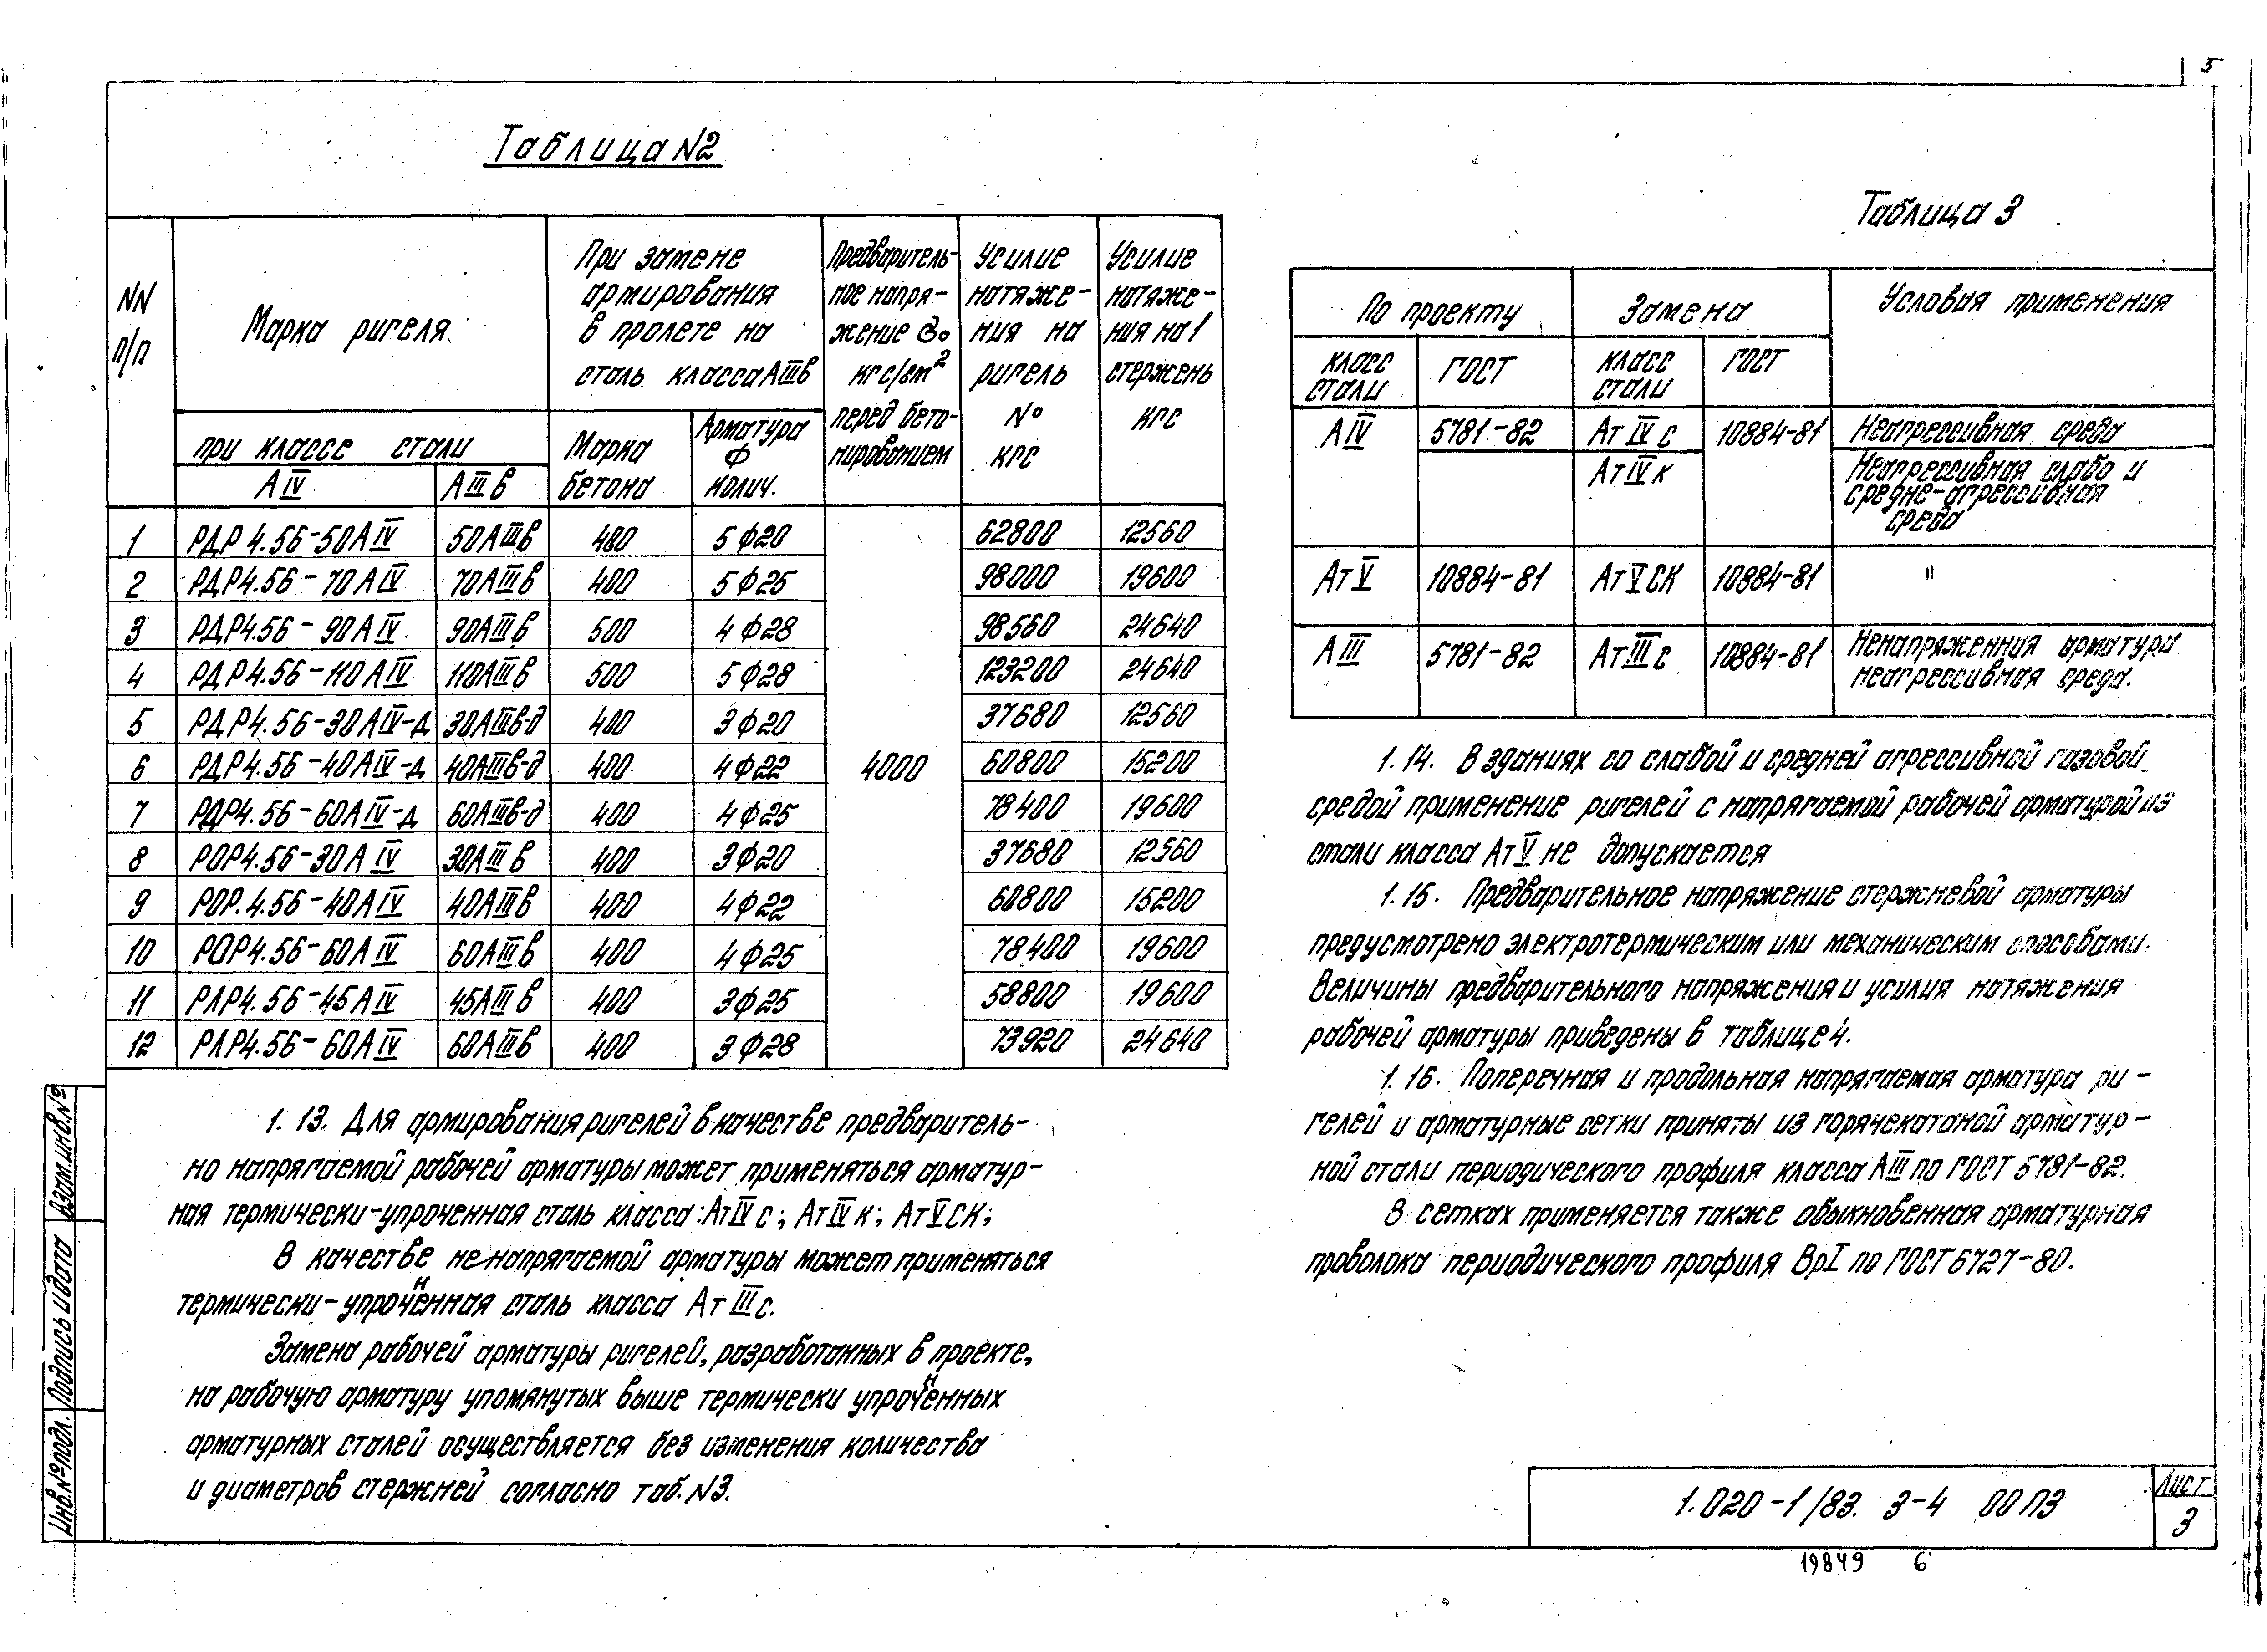 5
Таблица N2
NN п/п
Марка ригеля
При замене армирования в пролете на сталь класса АIIIв
Предваритель-
ное напря-
жение Ϭо
кгс/см²
перед бето-
нированием
Усилие
натяже-
ния на
ригель
N°
кгс
Усилие
натяже-
ния на 1
стержень
кгс
при классе стали
АIV АIIIв
Марка бетона
Арматура ф колич.
1 РДР 4.56-50АIV 50АIIIв 400 5ф20 62800 12560
2 РДР4.56-70АIV 70АIIIв 400 5ф25 98000 19600
3 РДР4.56-90АIV 90АIIIв 500 4ф28 98560 24640
4 РДР4.56-110АIV 110АIIIв 500 5ф28 123200 24640
5 РДР4.56-30АIV-д 30АIIIв-д 400 3ф20 37680 12560
6 РДР4.56-40АIV-д 40АIIIв-д 400 4ф22 4000 60800 15200
7 РДР4.56-60АIV-д 60АIIIв-д 400 4ф25 78400 19600
8 РОР4.56-30АIV 30АIIIв 400 3ф20 37680 12560
9 РОР.4.56-40АIV 40АIIIв 400 4ф22 60800 15200
10 РОР4.56-60АIV 60АIIIв 400 4ф25 78400 19600
11 РЛР4.56-45АIV 45АIIIв 400 3ф25 58800 19600
12 РЛР4.56-60АIV 60АIIIв 400 3ф28 73920 24640
1.13. Для армирования ригелей в качестве предваритель-
но напрягаемой рабочей арматуры может применяться арматур-
ная термически-упроченная сталь класса: АтIVс; АтIVк; АтVСК;
В качестве не напрягаемой арматуры может применяться
термически-упрочнённая сталь класса АтIIIс.
Замена рабочей арматуры ригелей, разработанных в проекте,
на рабочую арматуру упомянутых выше термически упрочнённых
арматурных сталей осуществляется без изменения количества
и диаметров стержней согласно таб. N3.
Таблица 3
По проекту Замена Условия применения
класс стали ГОСТ класс стали ГОСТ
АIV 5781-82 АтIVс 10884-81 Неагрессивная среда
АтIVк Неагрессивная слабо и
средне-агрессивная
среда
АтV 10884-81 АтVСК 10884-81 "
АIII 5781-82 АтIIIс 10884-81 Ненапряженния арматура
неагрессивная среда.
1.14. В зданиях со слабой и средней агрессивной газовой
средой применение ригелей с напрягаемой рабочей арматурой из
стали класса АтV не допускается
1.15. Предварительное напряжение стержневой арматуры
предусмотрено электротермическим или механическим способами.
Величины предварительного напряжения и усилия натяжения
рабочей арматуры приведены в таблице 4.
1.16. Поперечная и продольная напрягаемая арматура ри-
гелей и арматурные сетки приняты из горячекатаной арматур-
ной стали периодического профиля класса АIII по ГОСТ 5781-82.
В сетках применяется также обыкновенная арматурная
проволока периодического профиля ВрI по ГОСТ 6727-80.
Инв.№подл. Подпись и дата Взам.инв.№
1.020-1/83. 3-4 00 ПЗ
лист
3
19849 6